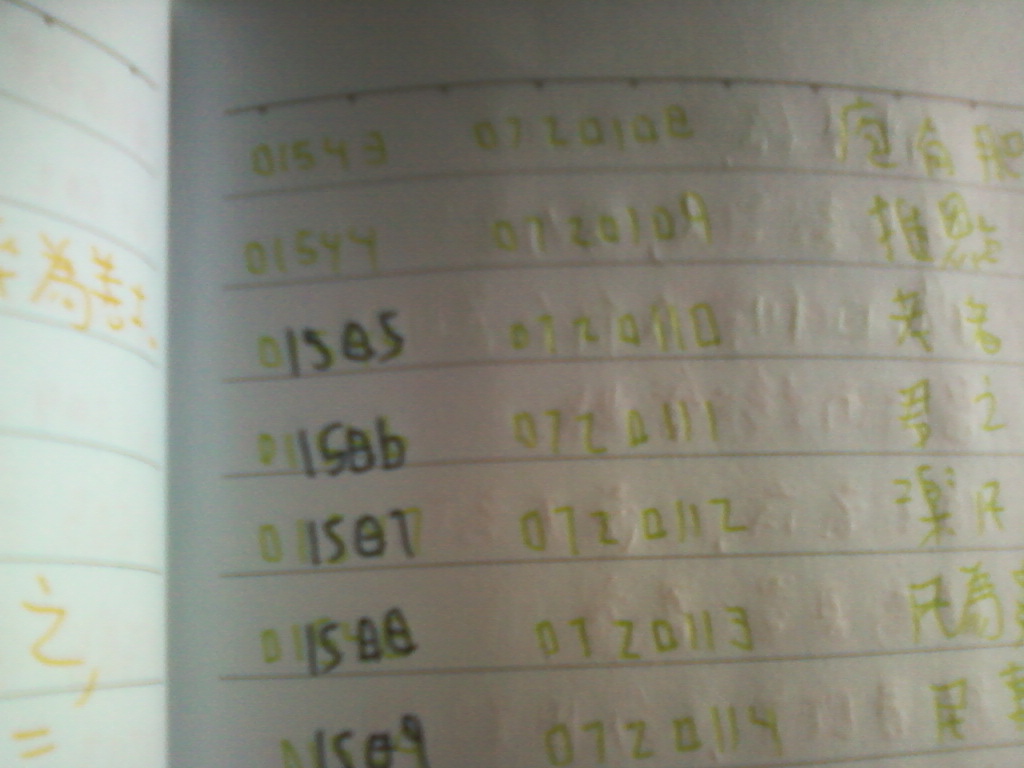 為善
之,
01543 0720108 庖有肥
01544 0720109 推恩
01585 0720110 老吾
01586 0720111 君之
01587 0720112 樂民
01588 0720113 民為
01589 0720114 民